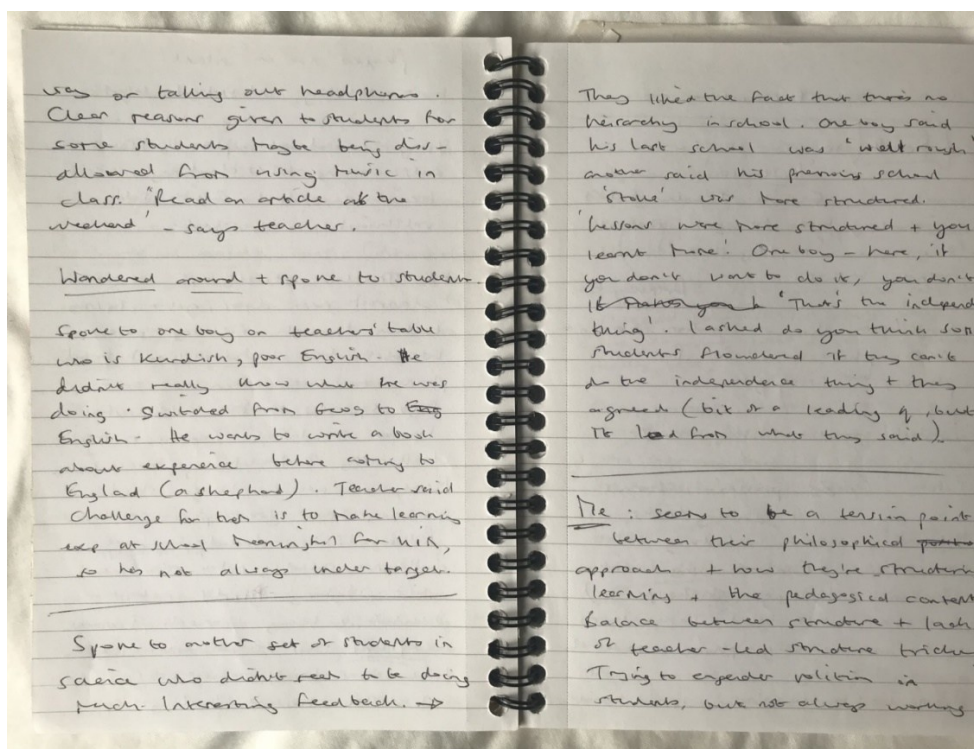 way or taking out headphones.
Clear reasons given to students for
some students maybe being dis-
allowed from using music in
class. "Read an article at the
weekend' - says teacher.
Wandered around + spoke to student
Spoke to one boy on teachers' table
who is Kurdish, poor English. He
didn't really know what he was
doing. Switched from Geog to Eng
English. He wants to write a book
about experience before coming to
Englad (a shepherd). Teacher said
challenge for them is to make learning
exp at school meaningful for him,
so he's not always under target.
Spoke to another set of students in
science who didn't seem to be doing
much. Interesting feedback. →
They liked the fact that there's no
heirarchy in school. One boy said
his last school was 'well rough'
another said his previous school
'Stoke' was more structured.
'Lessons were more structured + you
learnt more'. One boy - here, if
you don't want to do it, you don't
'That's the independ
thing'. I asked do you think som
students floundered if they can't
do the independence thing + they
agreed (bit of a leading q, but
it lead from what they said).
Me: seems to be a tension point
between their philosophical
approach + how they're structurin
learning + the pedagogical content
Balance between structure + lack
of teacher-led structure tricky
Trying to engender volition in
students, but not always working